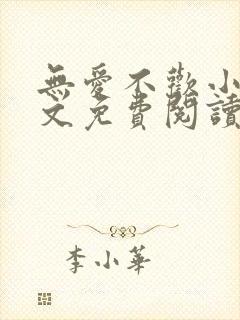 無愛不歡小
文免費閱讀
李小華